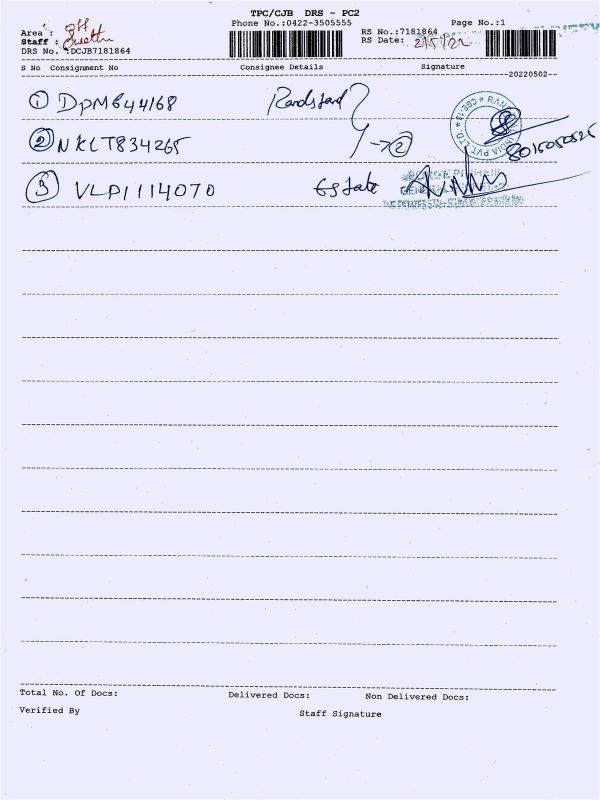 TPC/CJB DRS - PC2
Phone No.:0422-3505555 Page No.:1
Area :
Staff :
DRS No. :DCJB7181864
RS No.:7181864
RS Date: 2/5/22
S No Consignment No Consignee Details Signature
--20220502--
1 DPM644168 Randstand
2 NKLT834265 → 2
8015050525
3 VLP1114070 Estate
Total No. Of Docs: Delivered Docs: Non Delivered Docs:
Verified By Staff Signature